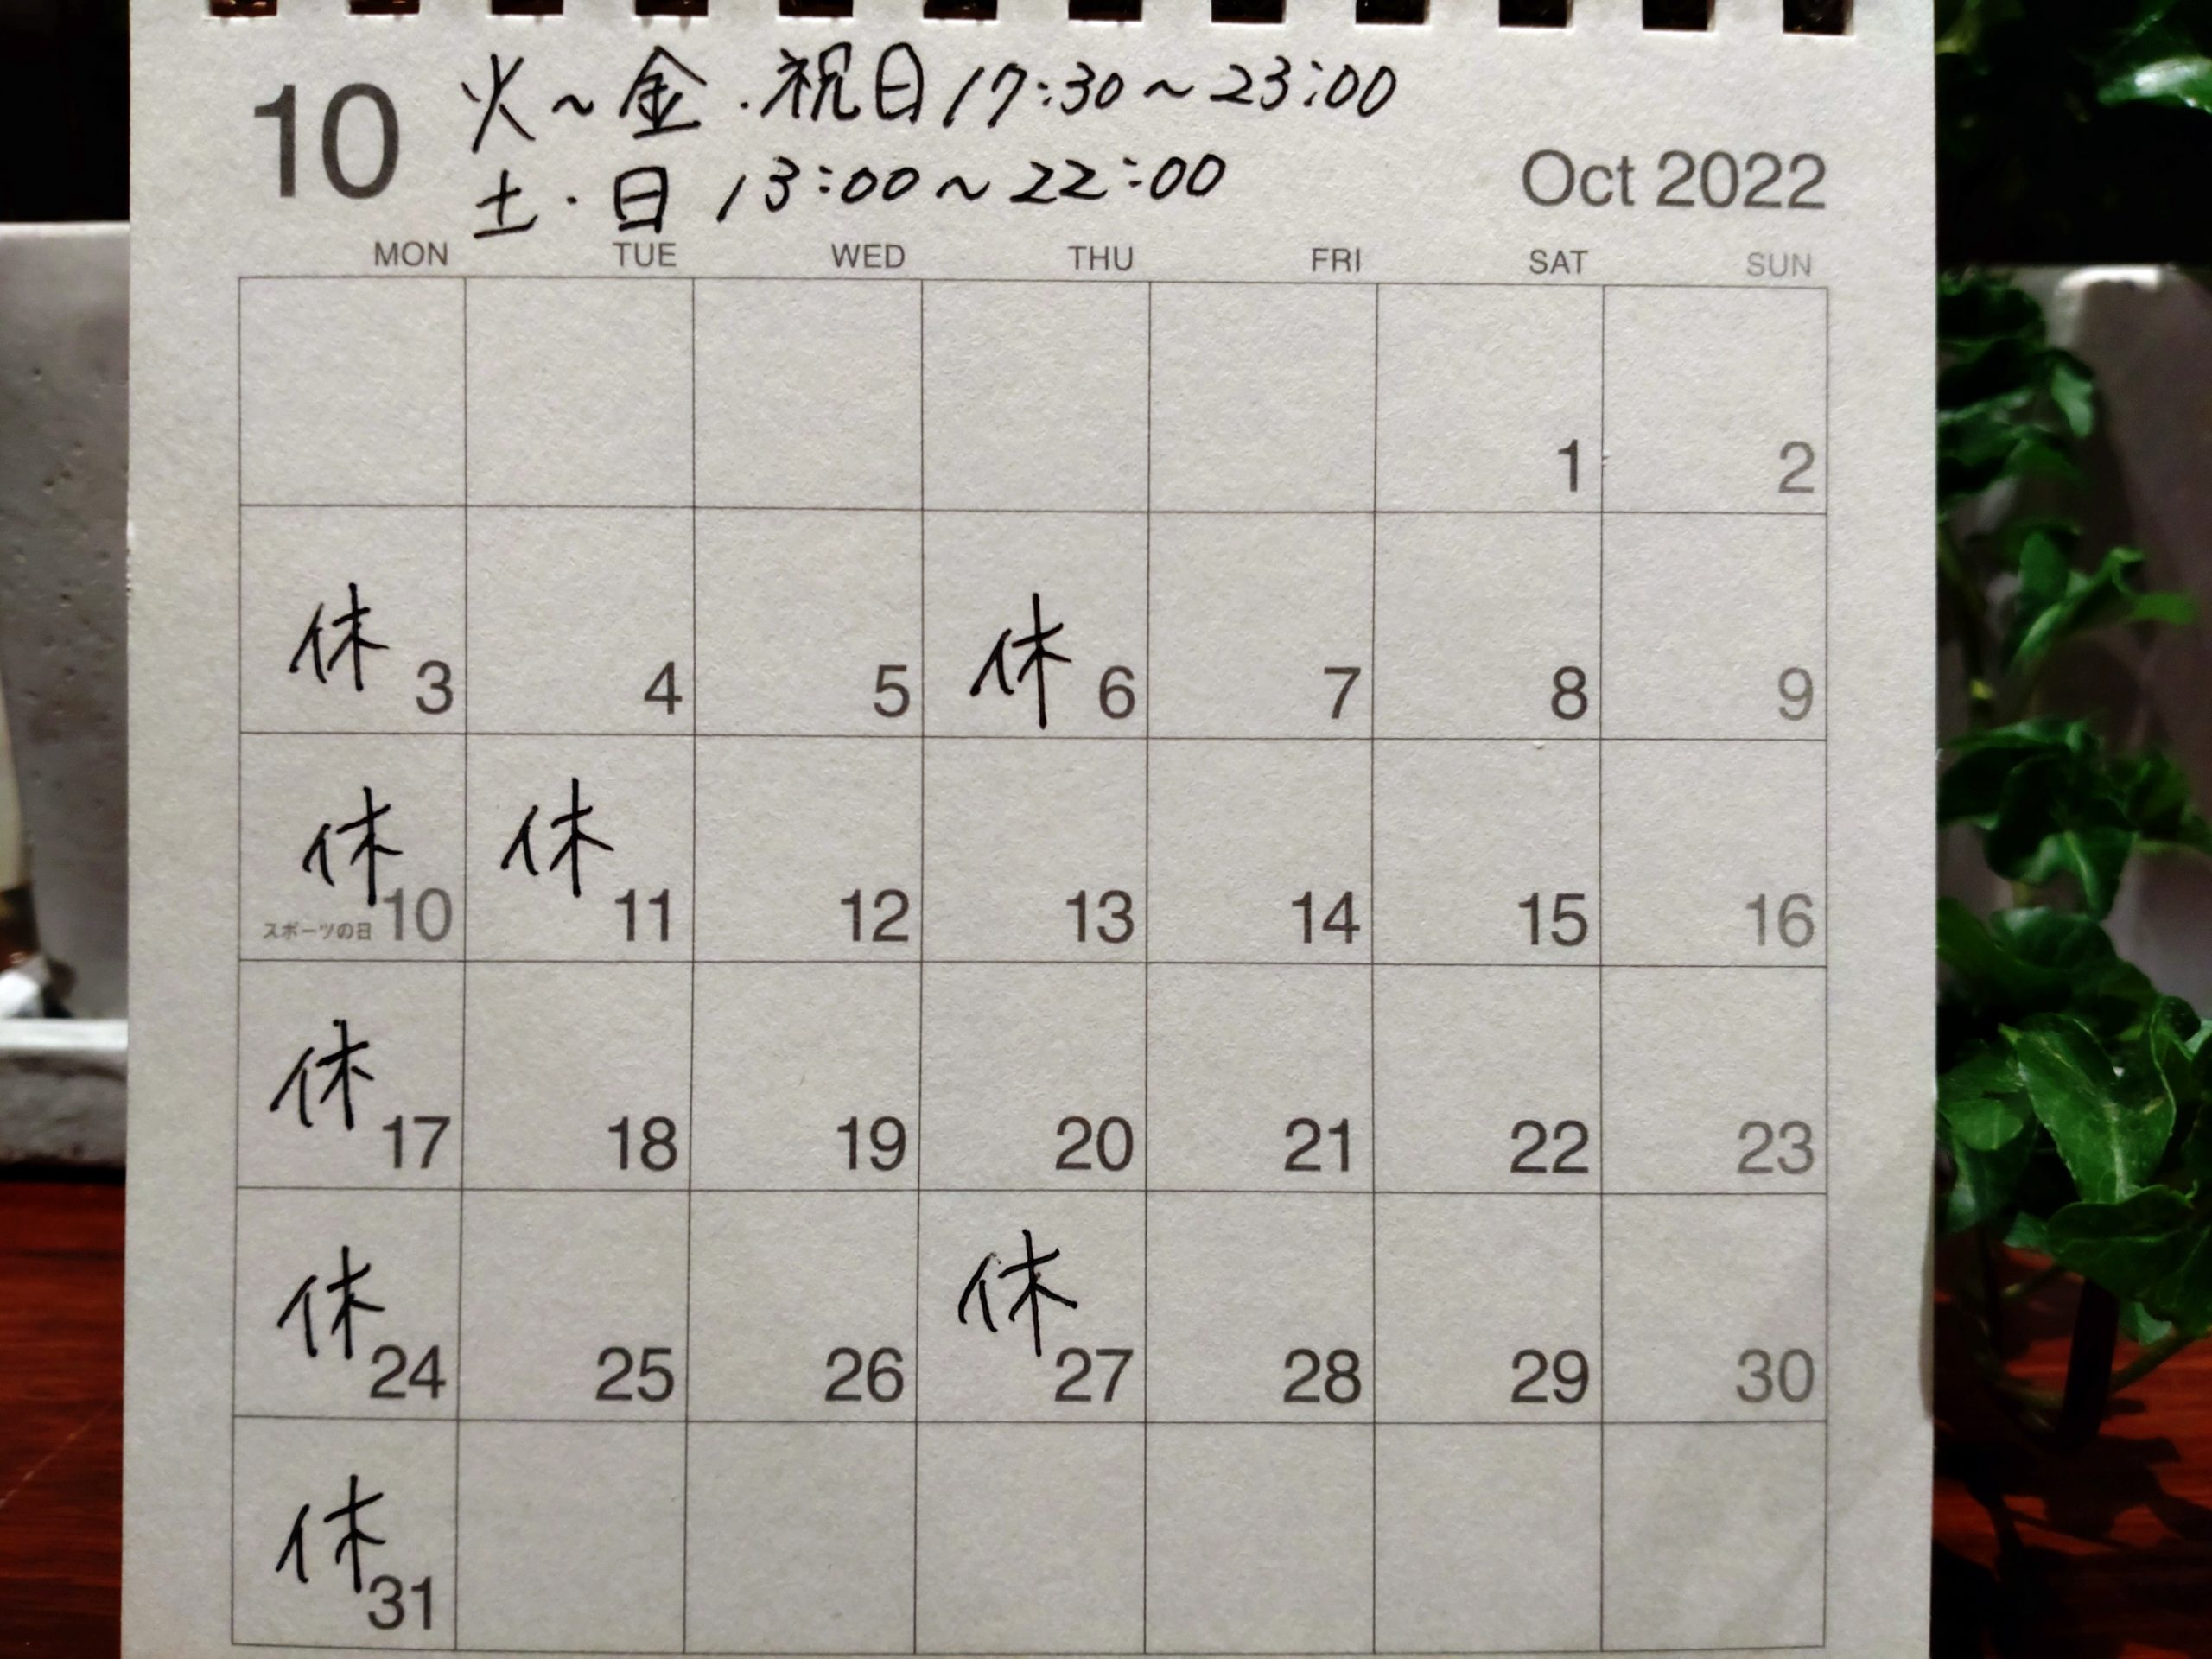 10
火~金・祝日 17:30~23:00
土・日 13:00~22:00
Oct 2022
MON TUE WED THU FRI SAT SUN
1 2
休 3 4 5 休 6 7 8 9
休 スポーツの日 10 休 11 12 13 14 15 16
休 17 18 19 20 21 22 23
休 24 25 26 休 27 28 29 30
休 31